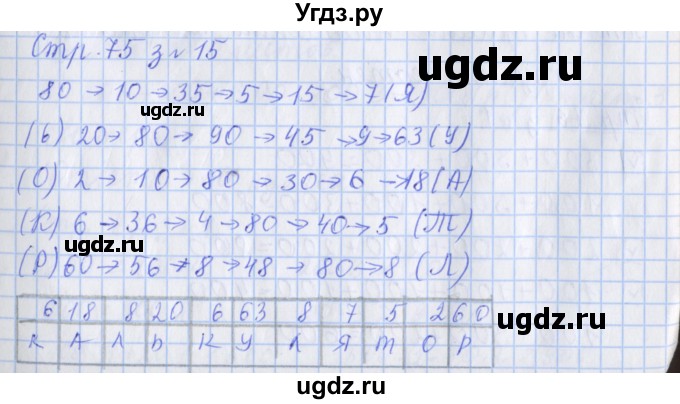 Угдз.ру
Стр. 75 з № 15
ugdz.ru
80 → 10 → 35 → 5 → 15 → 7 (Я)
ugdz.ru
(Ь) 20 → 80 → 90 → 45 → 9 → 63 (У)
(О) 2 → 10 → 80 → 30 → 6 → 18 (А)
ugdz.ru
(К) 6 → 36 → 4 → 80 → 40 → 5 (Т)
ugdz.ru
(Р) 60 → 56 → 8 → 48 → 80 → 8 (Л)
6 18 8 20 6 63 8 7 5 2 60
К А Л Ь К У Л Я Т О Р
ugdz.ru